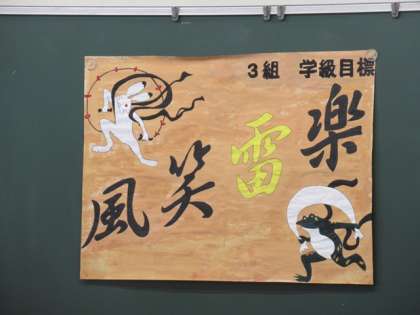 3組 学級目標
風笑雷楽